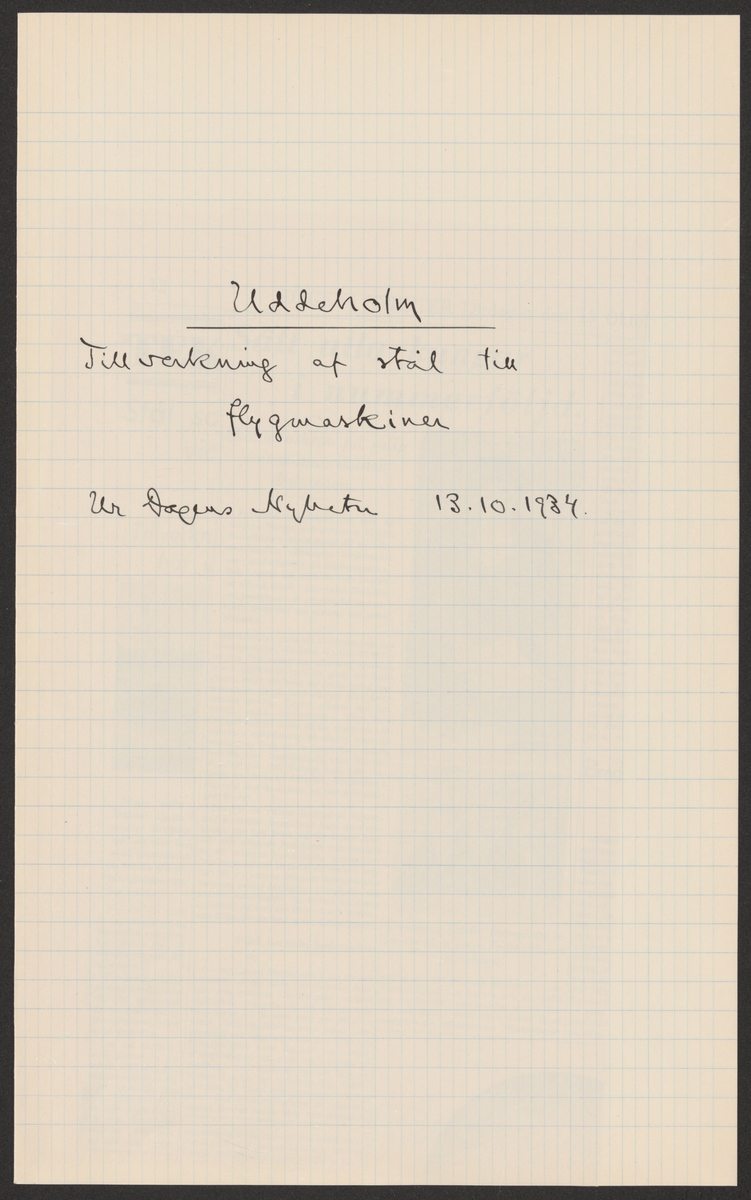 Uddeholm
Tillverkning af stål till
flygmaskiner
Ur Dagens Nyheter 13.10.1934.